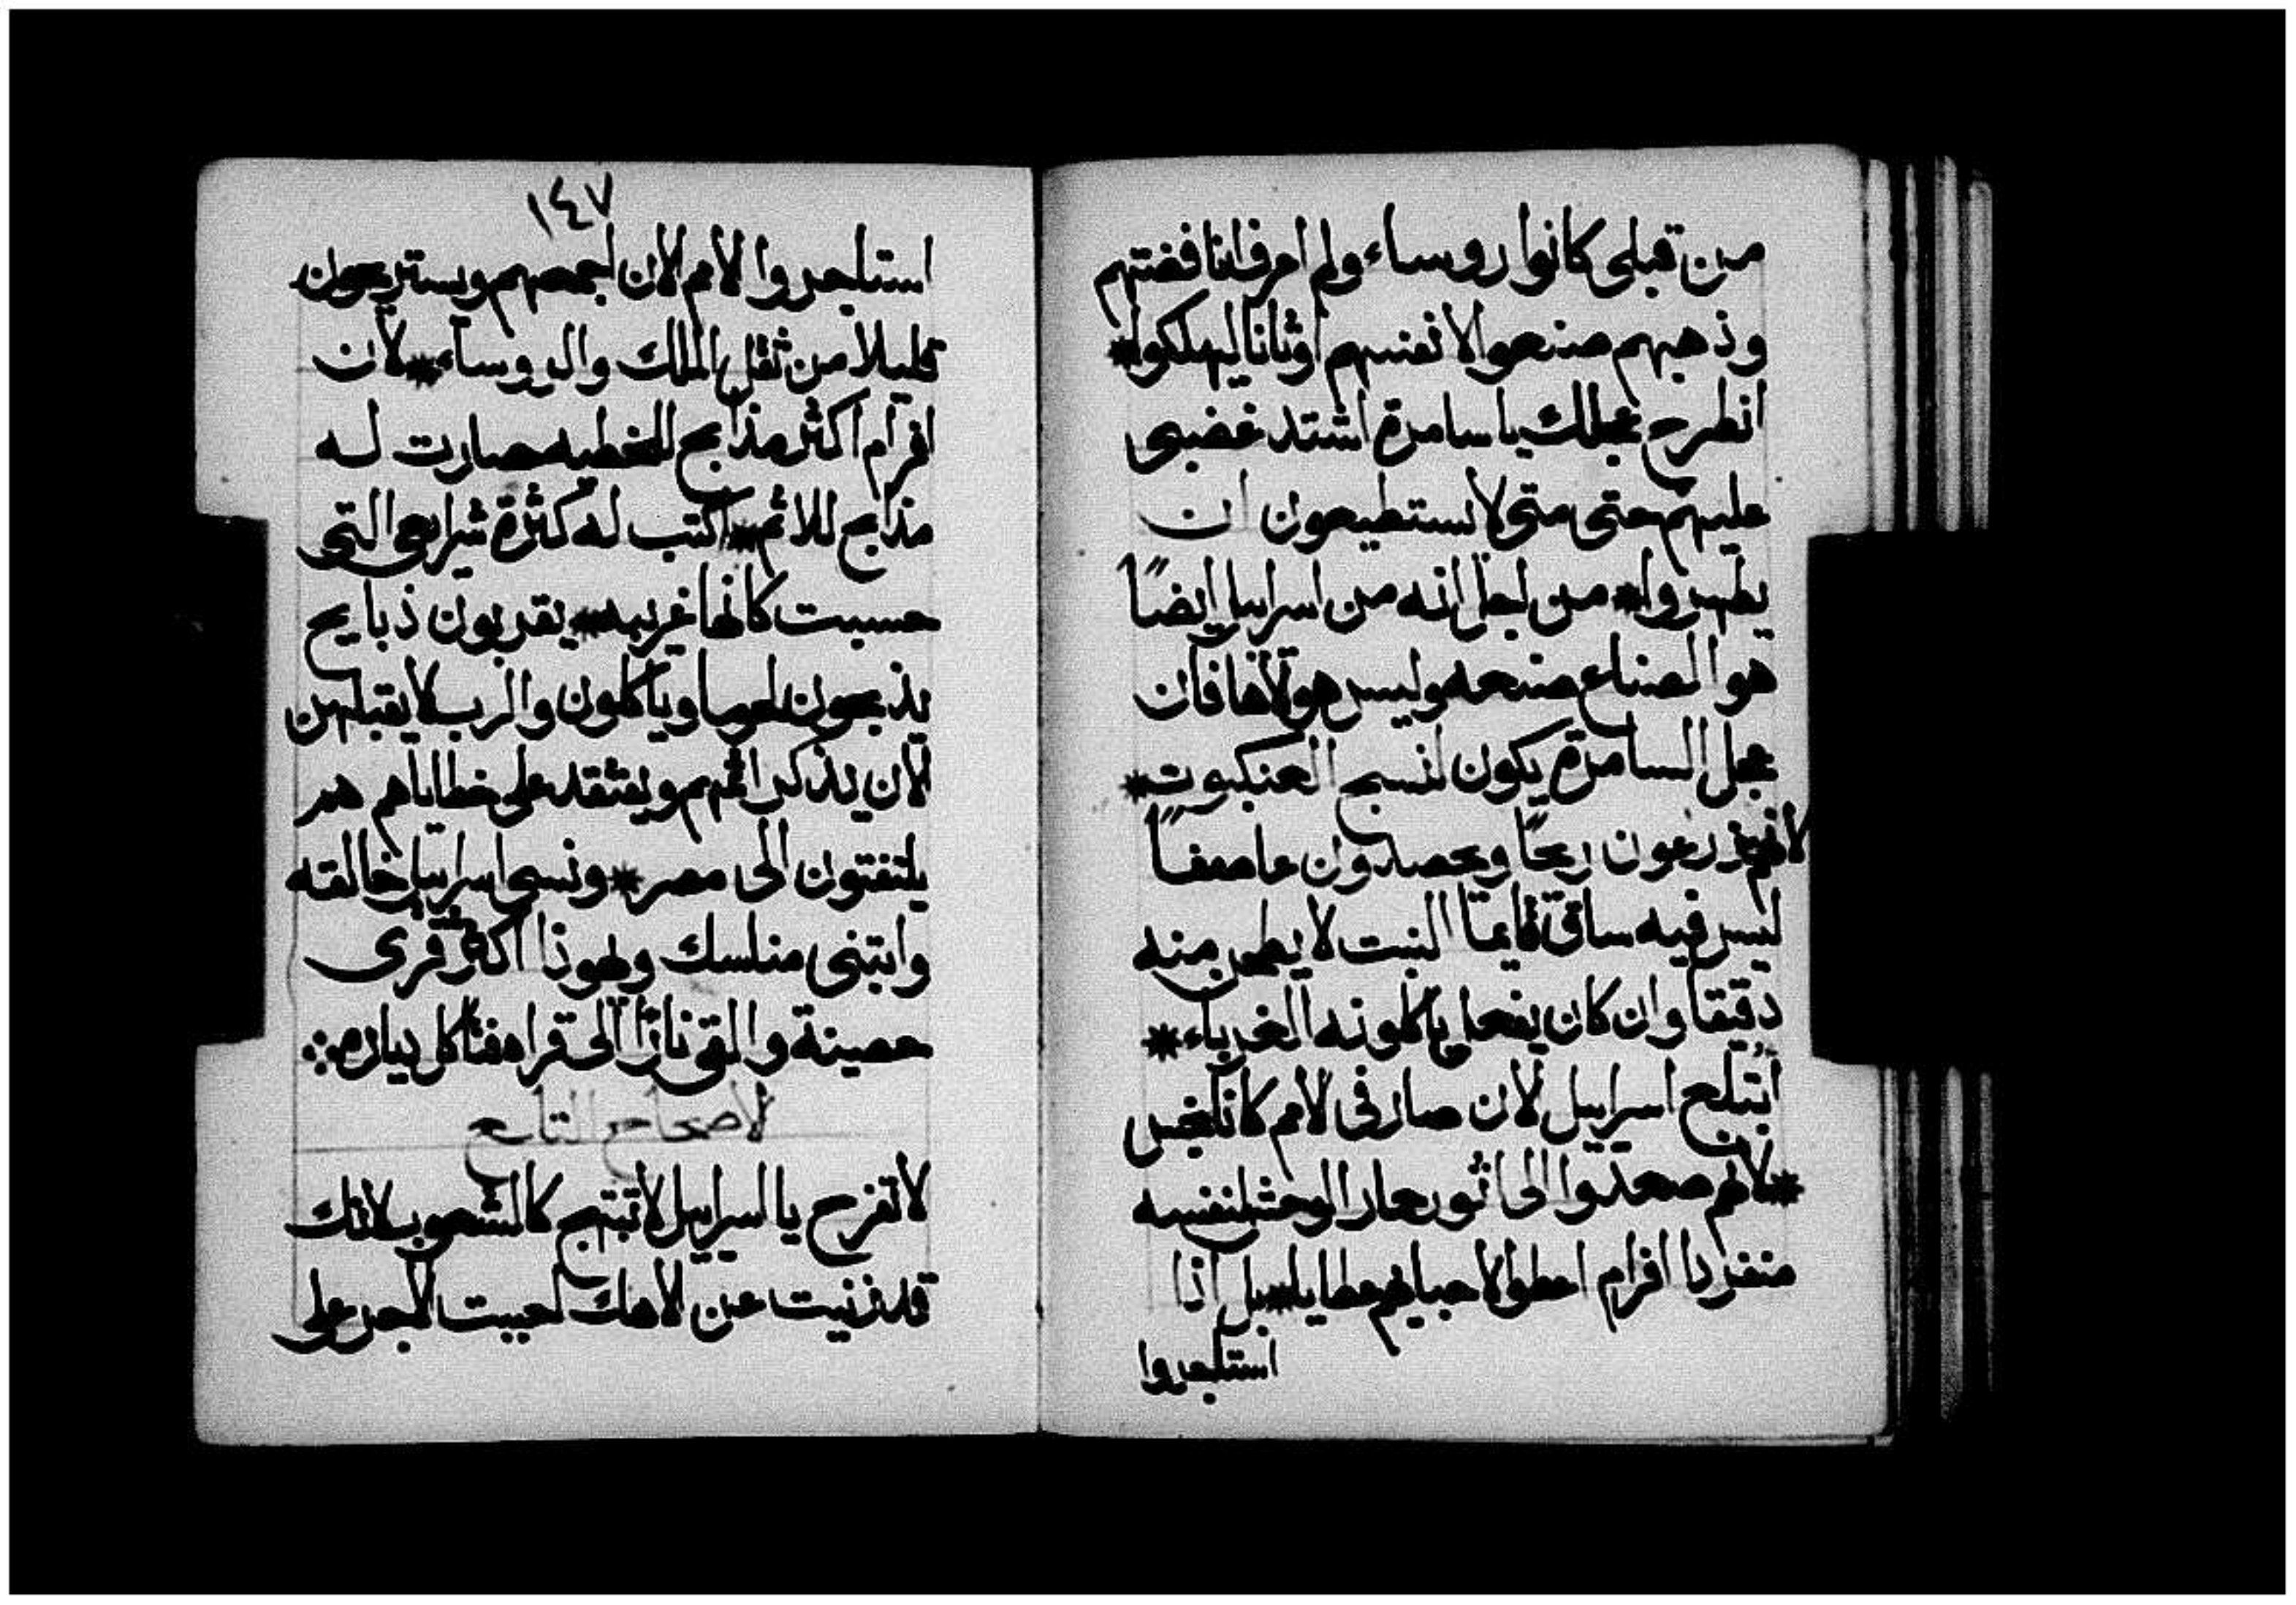 من قبلى كانوا روساء ولم اعرف انا فضتهم
وذهبهم صنعوا لانفسهم اوثانا ليهلكوا*
انطرح عجلك ياسامرة اشتد غضبى
عليهم حتى متى لا يستطيعون ان
يطهروا* من اجل انه من اسراييل ايضًا
هو الصناع صنعه وليس هو لاها فان
عجل السامرة يكون لنسج العنكبوت*
لانهم يزرعون ريحًا ويحصدون عاصفًا
ليس فيه ساق قايما النبت لا يطحن منه
دقيقا وان كان يفعل ياكلونه الغرباء*
ابتلع اسراييل الان صار فى الامم كانا نجس
*لانهم صعدوا الى اثور حمار الوحش لنفسه
منفردا افرام اعطوا لاحبايهم عطايا* بل اذا
استاجروا
١٤٧
استاجروا الامم الان اجمعهم ويستريحون
قليلا من ثقل الملك والروساء* لان
افرام اكثر مذابح للخطيه صارت له
مذابح للاثم* اكتب له كثرة شرايعى التى
حسبت كانها غريبه* يقدبون ذبايح
يذبحون لحوما وياكلون والرب لا يقبلهن
الان يذكر اثمهم ويفتقد على خطاياهم هم
يلتفتون الى مصر* ونسى اسراييل خالقه
وابتنى مناسك ويهوذا اكثر قرى
حصينة والقى نارًا الى قراه فتاكل دياره
الاصحاح التاسع
لا تفرح يا اسراييل لا تبتهج كالشعوب لانك
قد زنيت عن الاهك احببت الاجر على